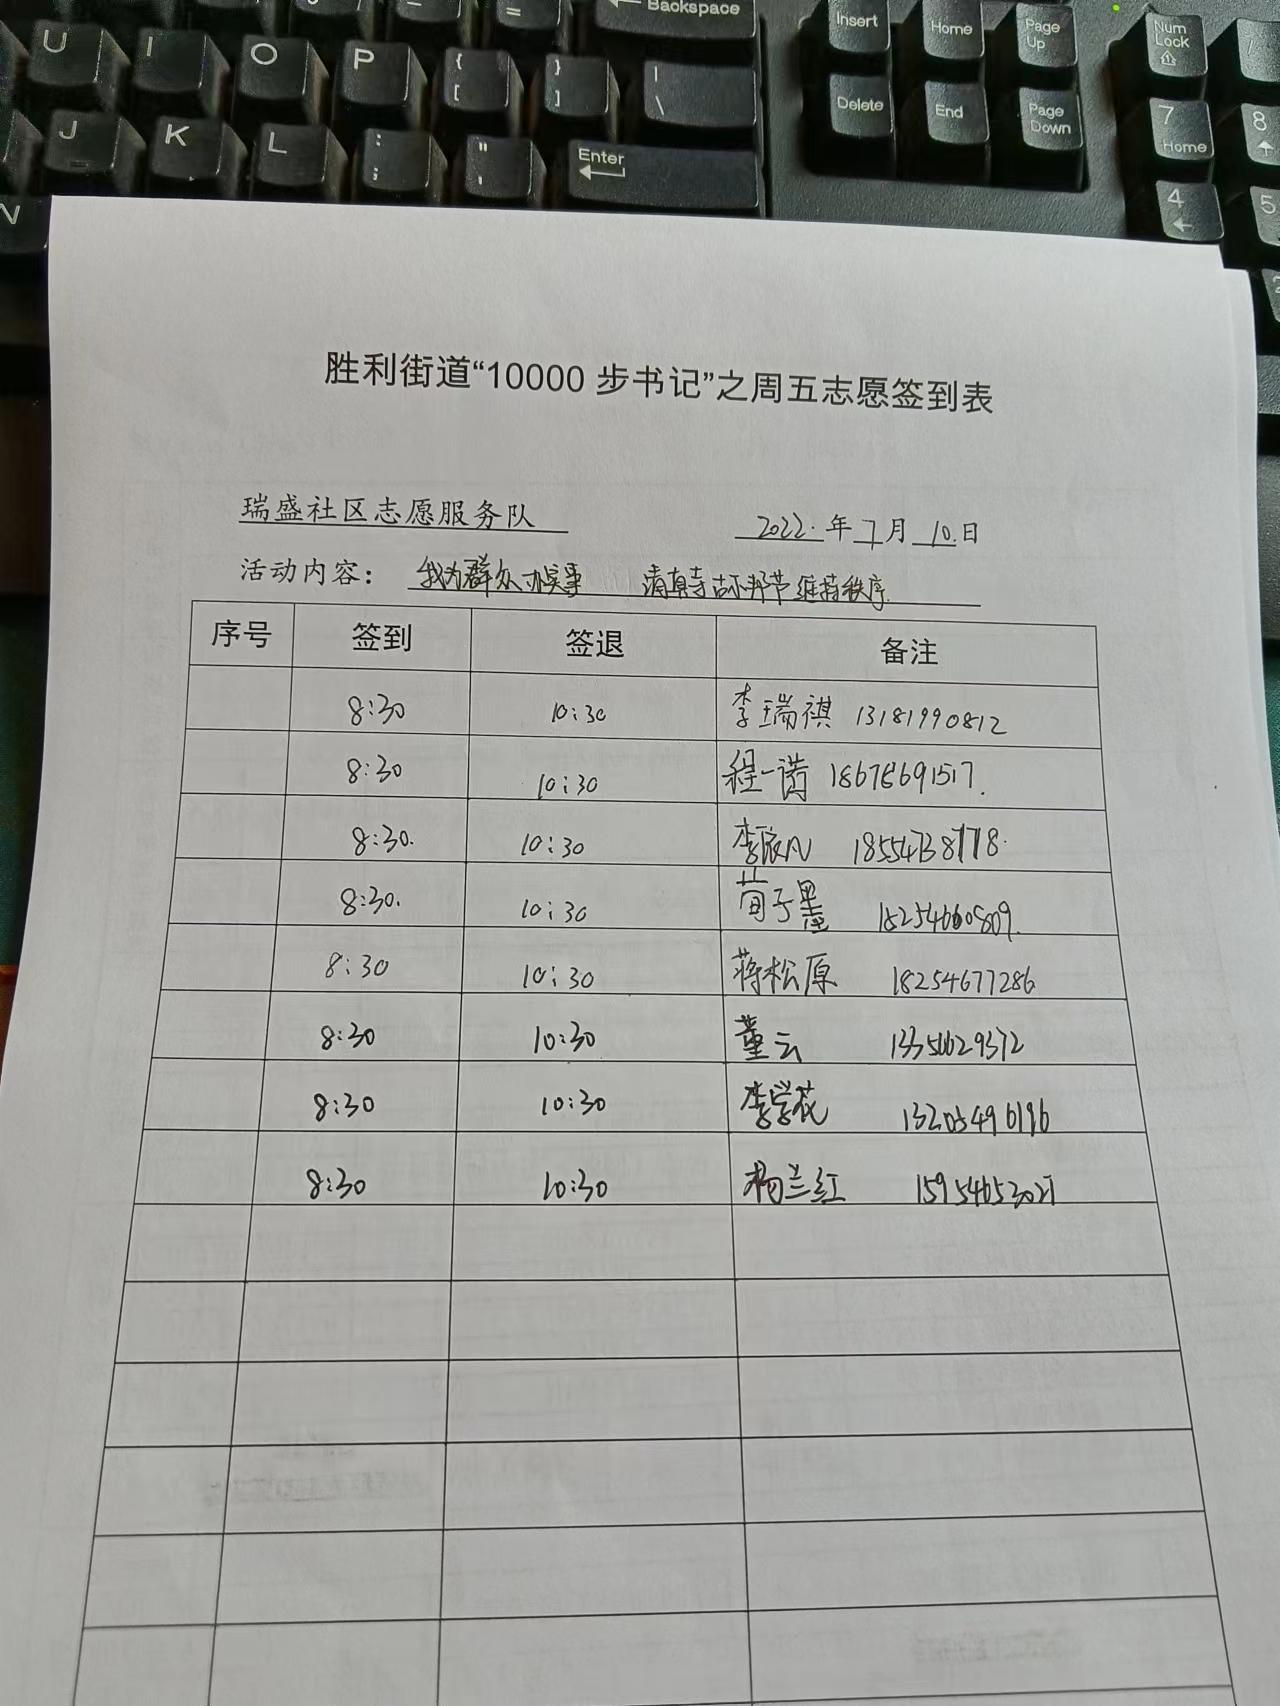 = Backspace Insert Home Page Up Num Lock /
U I O P { [ } ] | \ Delete End Page Down 7 Home 8
J K L : ; " ' Enter 4 5
N
胜利街道“10000 步书记”之周五志愿签到表
瑞盛社区志愿服务队 2022. 年 7 月 10. 日
活动内容： 我为群众办实事 清真寺古尔邦节维持秩序.
序号 签到 签退 备注
8:30 10:30 李瑞祺 13181990812
8:30 10:30 程一诺 18678691517.
8:30. 10:30 李宸凡 18554738778.
8:30. 10:30 荀子墨 18254660809.
8:30 10:30 蒋松原 18254677286
8:30 10:30 董云
8:30 10:30 李学花 13203496196
8:30 10:30 杨兰红